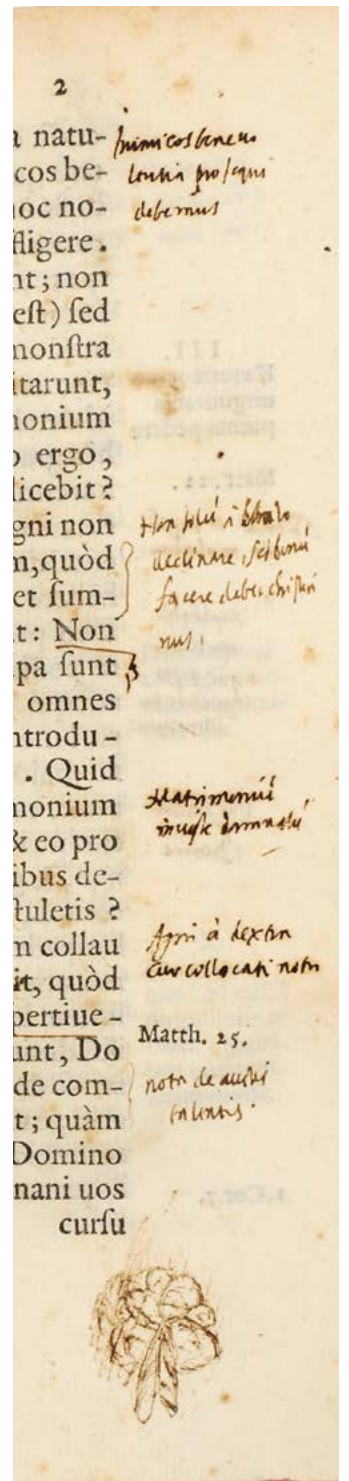 2
a natu-
cos be-
hoc no-
fligere.
nt; non
eſt) ſed
monſtra
itarunt,
monium
o ergo,
licebit?
gni non
m, quòd
et ſum-
t: Non
pa ſunt
omnes
ntrodu-
. Quid
monium
& eo pro
ibus de-
ſtuletis?
m collau
it, quòd
pertiue-
unt, Do
de com-
t; quàm
Domino
nani uos
curſu
inimicos beneuo
lentia proſequi
debemus
Non ſolũ à malo
declinare, ſed bonũ
facere debet chriſtia
nus.
Matrimoniũ
iniuſte damnatũ
Agni à dextra
cur collocati nota
Matth. 25.
nota de auctis
talentis.